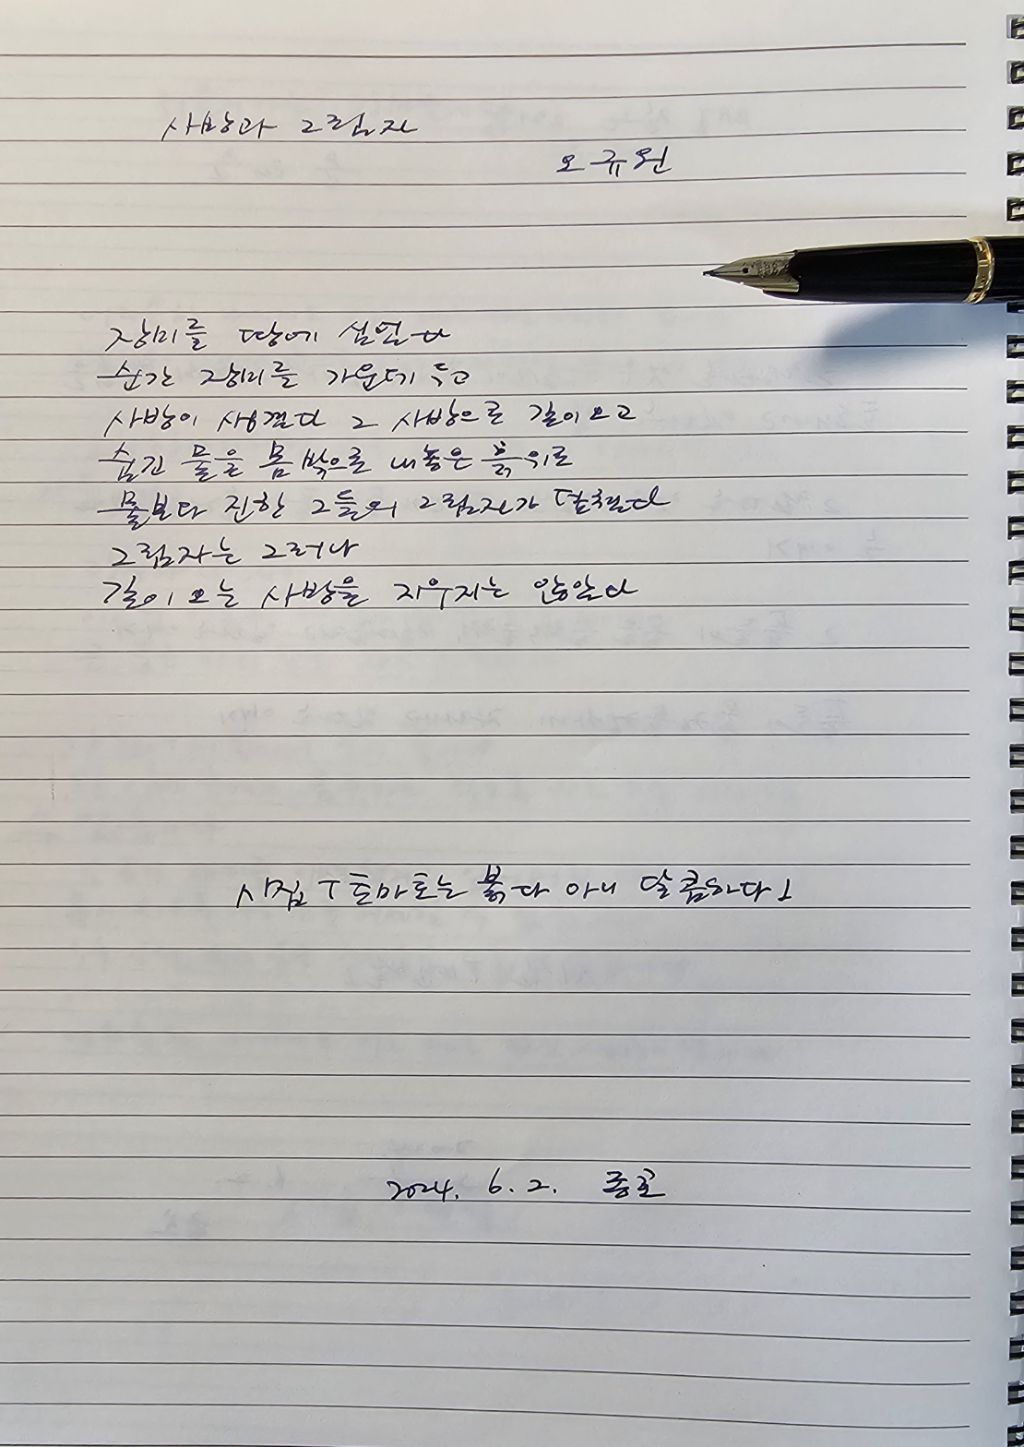 사방과 그림자
오규원
장미를 땅에 심었다
순간 장미를 가운데 두고
사방이 생겼다 그 사방으로 길이 오고
숨긴 물을 몸 밖으로 내놓은 흙 위로
물보다 진한 그들의 그림자가 덮쳤다
그림자는 그러나
길이 오는 사방을 지우지는 않았다
시집 「토마토는 붉다 아니 달콤하다」
2024. 6. 2.